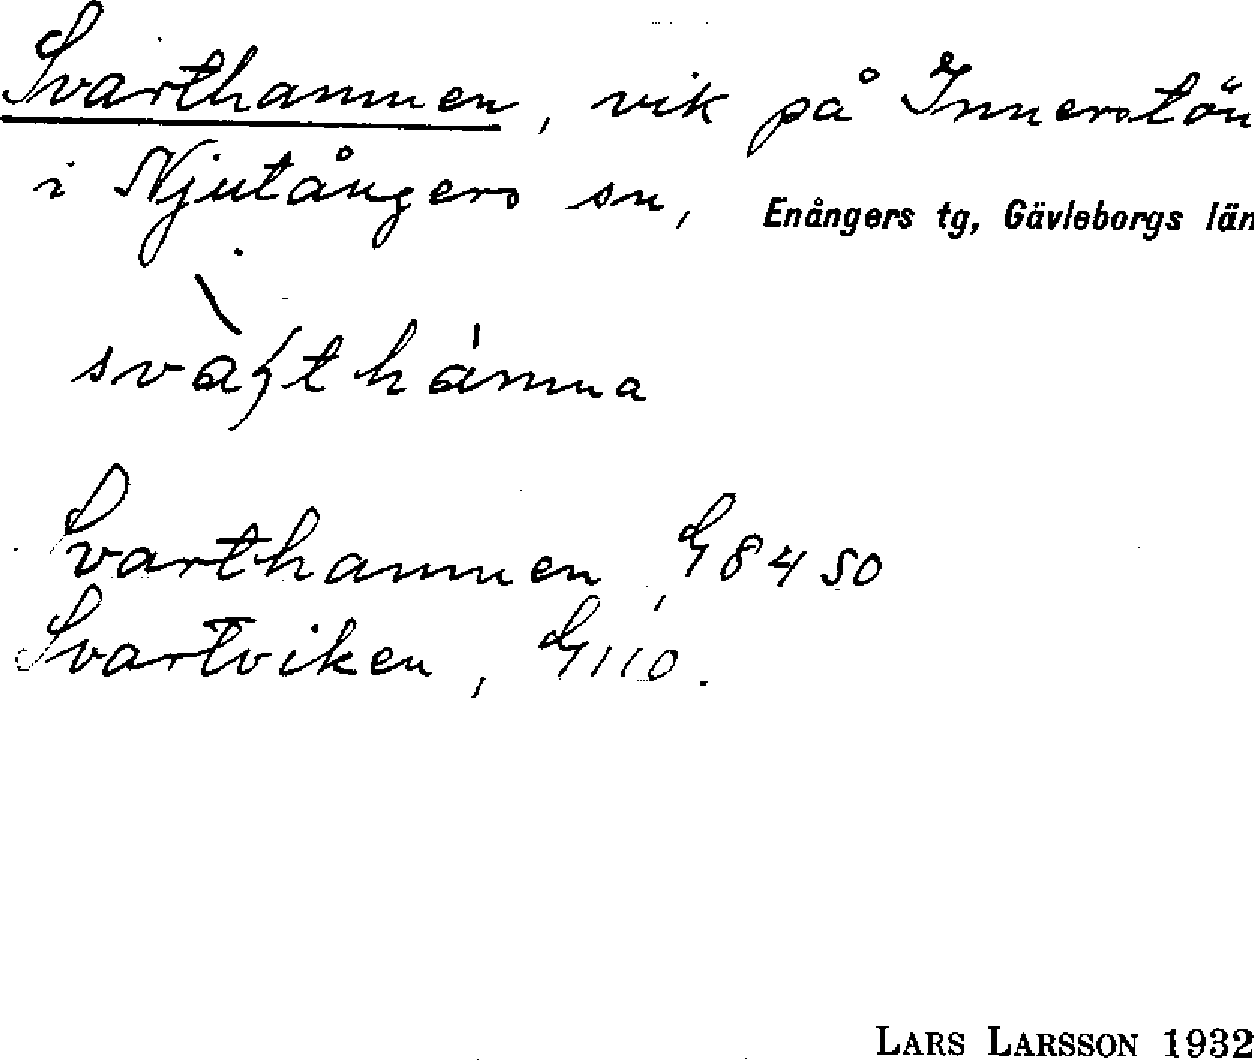 Svarthamnen, vik på Innerstön
i Njutångers sn, Enångers tg, Gävleborgs län
Svarthamnen, G8450
Svartviken, G110.
LARS LARSSON 1932